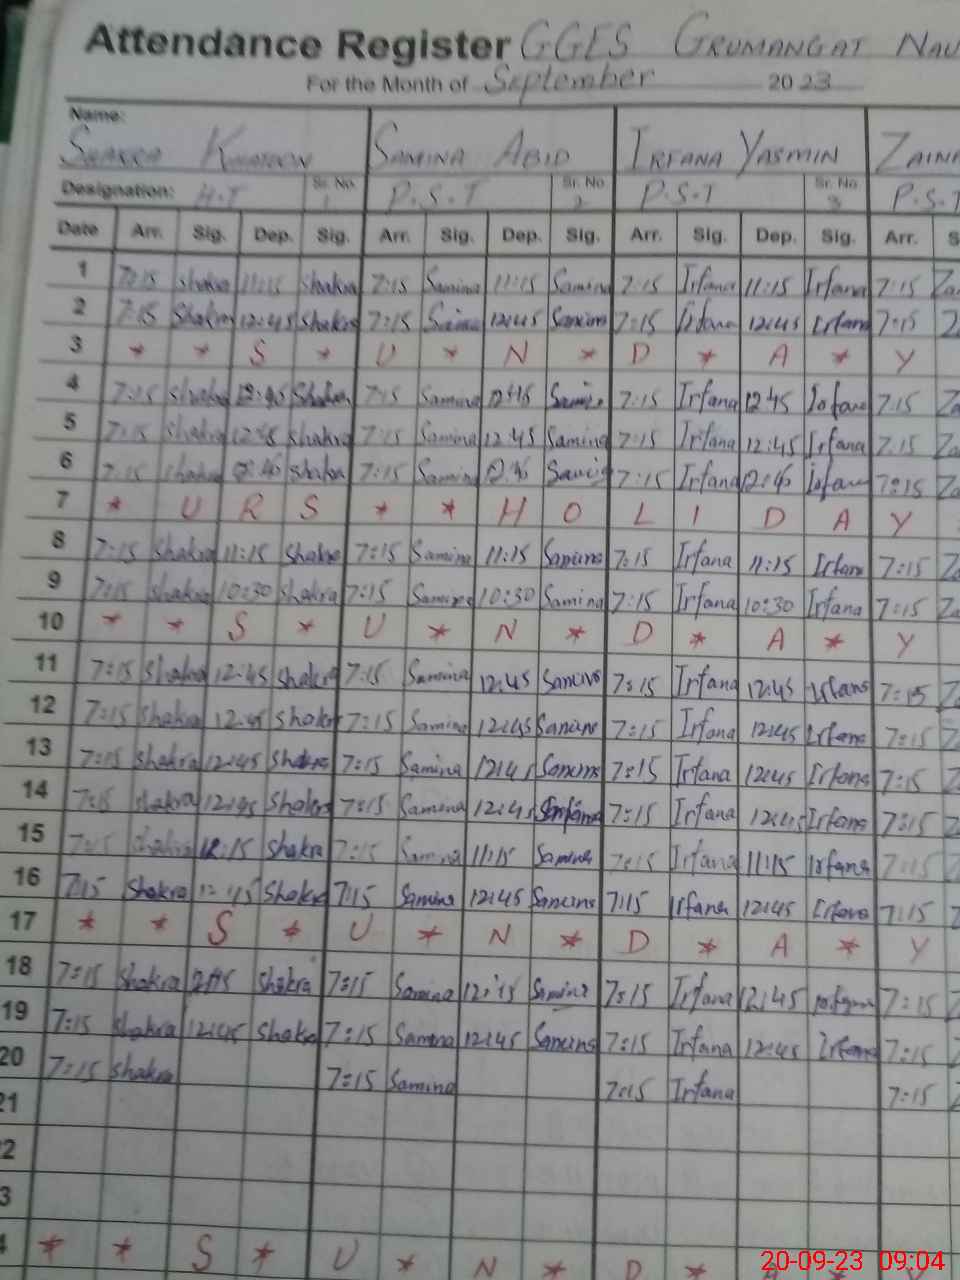 Attendance Register GGES GRUMANGAT NAU
For the Month of September 2023
Name:
SHAKRA KHATOON SAMINA ABID IRFANA YASMIN ZAINA
Designation: H.T Sr. No 1 P.S.T Sr. No 2 P.S.T Sr. No 3 P.S.T
Date Arr. Sig. Dep. Sig. Arr. Sig. Dep. Sig. Arr. Sig. Dep. Sig. Arr. S
1 7:15 Shakra 11:15 Shakra 7:15 Samina 11:15 Samina 7:15 Irfana 11:15 Irfana 7:15 Za
2 7:15 Shakra 12:45 Shakra 7:15 Samina 12:45 Samina 7:15 Irfana 12:45 Irfana 7:15
3 * * S * U * N * D * A * Y
4 7:15 Shakra 12:45 Shakra 7:15 Samina 12:45 Samina 7:15 Irfana 12:45 Irfana 7:15 Za
5 7:15 Shakra 12:45 Shakra 7:15 Samina 12:45 Samina 7:15 Irfana 12:45 Irfana 7:15 Za
6 7:15 Shakra 12:45 Shakra 7:15 Samina 12:45 Samina 7:15 Irfana 12:45 Irfana 7:15 Za
7 * U R S * * H O L I D A Y
8 7:15 Shakra 11:15 Shakra 7:15 Samina 11:15 Samina 7:15 Irfana 11:15 Irfana 7:15 Za
9 7:15 Shakra 10:30 Shakra 7:15 Samina 10:30 Samina 7:15 Irfana 10:30 Irfana 7:15 Za
10 * * S * U * N * D * A * Y
11 7:15 Shakra 12:45 Shakra 7:15 Samina 12:45 Samina 7:15 Irfana 12:45 Irfana 7:15
12 7:15 Shakra 12:45 Shakra 7:15 Samina 12:45 Samina 7:15 Irfana 12:45 Irfana 7:15
13 7:15 Shakra 12:45 Shakra 7:15 Samina 12:45 Samina 7:15 Irfana 12:45 Irfana 7:15
14 7:15 Shakra 12:45 Shakra 7:15 Samina 12:45 7:15 Irfana 12:45 Irfana 7:15
15 7:15 Shakra Shakra 7:15 Samina 11:15 Samina 7:15 Irfana 11:15 Irfana 7:15
16 7:15 Shakra 12:45 Shakra 7:15 Samina 12:45 Samina 7:15 Irfana 12:45 Irfana 7:15
17 * * S * U * N * D * A * Y
18 7:15 Shakra Shakra 7:15 Samina Samina 7:15 Irfana 12:45 Irfana 7:15
19 7:15 Shakra 12:45 Shakra 7:15 Samina 12:45 Samina 7:15 Irfana 12:45 Irfana 7:15
20 7:15 Shakra 7:15 Samina 7:15 Irfana 7:15
21
2
3
4 * * S * U * N * D *
20-09-23 09:04